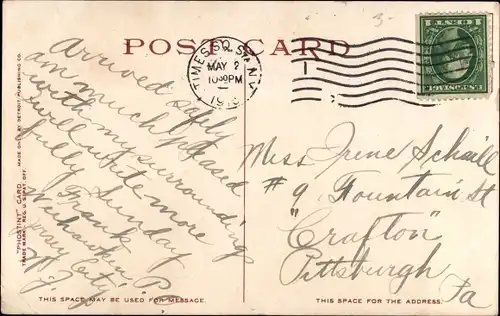 POST CARD
TIMES SQ. STA. N.Y.
MAY 2
1030PM
Arrived safly
am much pleased
with my surroundings
will write more
fully Sunday
Frank
Weehawken P.
Jersey City
N.J.
Miss Irene Schaill
# 9 Fountain St
"Crafton"
Pittsburgh
Pa
"PHOSTINT" CARD
TRADE MARK, REG. U.S. PAT. OFF.
MADE ONLY BY DETROIT PUBLISHING CO.
THIS SPACE MAY BE USED FOR MESSAGE.
THIS SPACE FOR THE ADDRESS.